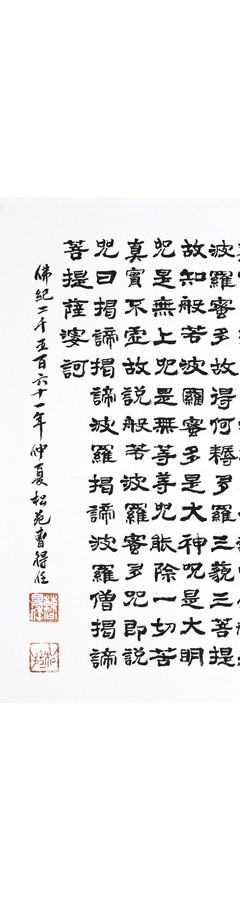 波羅蜜多故得阿耨多羅三藐三菩提
故知般若波羅蜜多是大神咒是大明
咒是無上咒是無等等咒能除一切苦
真實不虛故說般若波羅蜜多咒即說
咒曰揭諦揭諦波羅揭諦波羅僧揭諦
菩提薩婆訶
佛紀二千五百六十一年仲夏松苑曹得